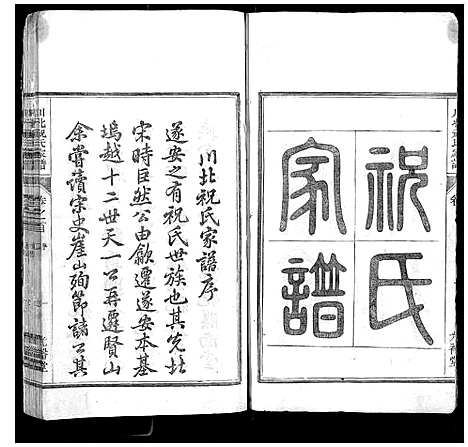 祝氏
家譜
川北祝氏家譜序
遂安之有祝氏世族也其先北
宋時巨然公由歙遷遂安本基
塢越十二世天一公再遷賢山
余嘗讀宋史崖山殉節諸公其
川北祝氏家譜
卷之首